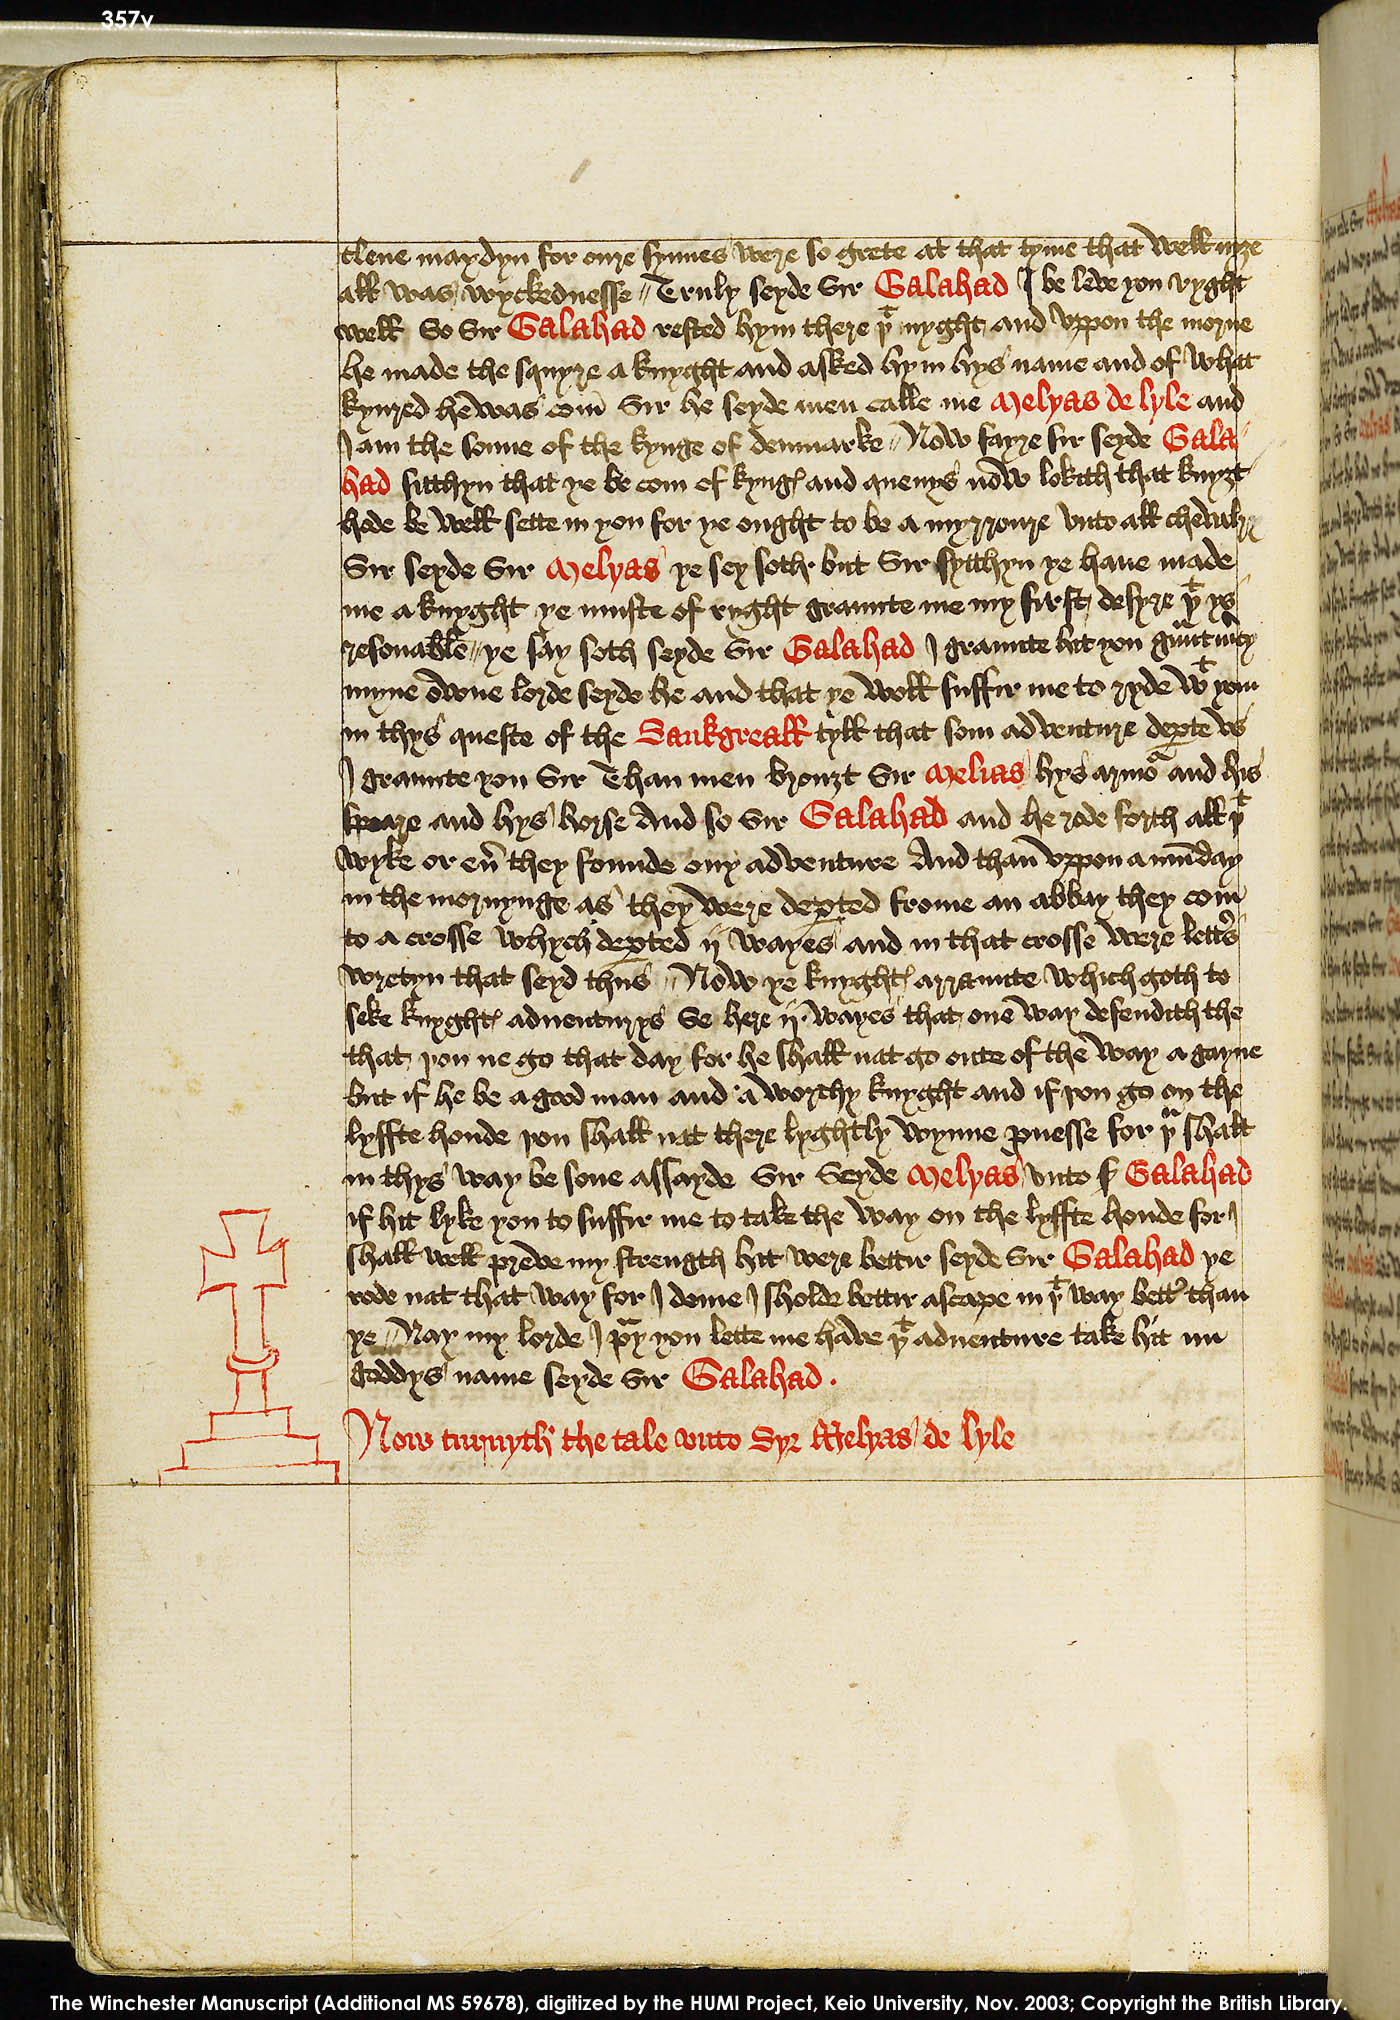 357v
clene maydyn for oure synnes were so grete at that tyme that well nyze
all was wyckednesse // Truly seyde Sir Galahad I be leve you ryght
well So Sir Galahad rested hym there þt nyght and vppon the morne
he made the squyre a knyght and asked hym hys name and of what
kynred he was com Sir he seyde men calle me Melyas de lyle and
I am the sonne of the kynge of denmarke // Now fayre sir seyde Gala
had sitthyn that ye be com of kyngꝭ and quenys now lokith that knyzt
hode be well sette in you for ye ought to be a myrroure vnto all chevalry
Sir seyde Sir Melyas ye sey soth but Sir sytthyn ye have made
me a knyght ye muste of ryght graunte me my first desyre þt ys
resonable // ye say soth seyde Sir Galahad I graunte hit you
myne owne lorde seyde he and that ye woll suffir me to ryde wt you
in thys queste of the Sankgreall tyll that som adventure deꝑte vs
I graunte you Sir Than men brouzt Sir Melias hys armor and his
speare and hys horse And so Sir Galahad and he rode forth all þt
wyke or eu̅ they founde ony adventure And than vppon a munday
in the mornynge as they were deꝑted frome an abbay they com
to a crosse whych deꝑted ij wayes and in that crosse were letters
wretyn that seyd thus // Now ye knyghtꝭ arraunte which goth to
seke knyghtꝭ adventurys Se here ij wayes that one way defendith the
that þou ne go that day for he shall nat go oute of the way a gayne
but if he be a good man and a worthy knyght and if þou go on the
lyffte honde þou shall nat there lyghtly wynne ꝓuesse for þu shalt
in thys way be sone assayde Sir Seyde Melyas vnto ẜ Galahad
if hit lyke you to suffir me to take the way on the lyffte honde for I
shall well preve my strength hit were bettir seyde Sir Galahad ye
rode nat that way for I deme I sholde bettir ascape in þt way bettir than
ye // Nay my lorde I pray you lette me have þt adventure take hit in
goddys name seyde Sir Galahad .
Now turnyth the tale vnto Syr Melyas de lyle
The Winchester Manuscript (Additional MS 59678), digitized by the HUMI Project, Keio University, Nov. 2003; Copyright the British Library.